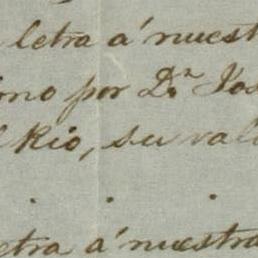 letra á nuest
por Dn. Jos
Rio, su val
etra á nuestra